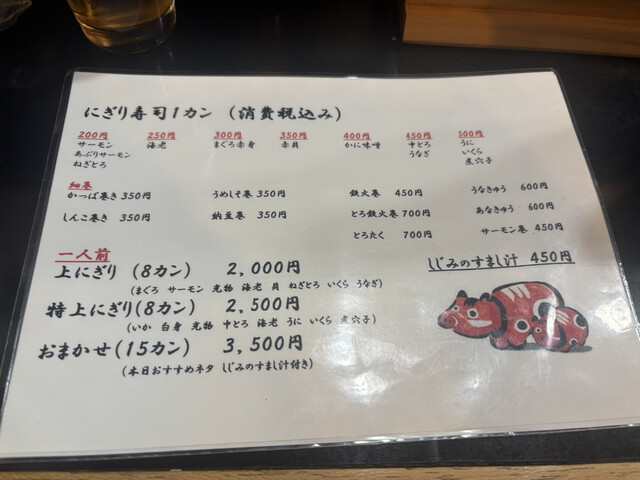 にぎり寿司1カン（消費税込み）
200円 250円 300円 350円 400円 450円 500円
サーモン 海老 まぐろ赤身 赤貝 かに味噌 中とろ うに
あぶりサーモン うなぎ いくら
ねぎとろ 煮穴子
細巻
かっぱ巻き 350円 うめしそ巻 350円 鉄火巻 450円 うなきゅう 600円
しんこ巻き 350円 納豆巻 350円 とろ鉄火巻 700円 あなきゅう 600円
とろたく 700円 サーモン巻 450円
一人前
しじみのすまし汁 450円
上にぎり（8カン） 2,000円
（まぐろ サーモン 光物 海老 貝 ねぎとろ いくら うなぎ）
特上にぎり（8カン） 2,500円
（いか 白身 光物 中とろ 海老 うに いくら 煮穴子）
おまかせ（15カン） 3,500円
（本日おすすめネタ しじみのすまし汁付き）